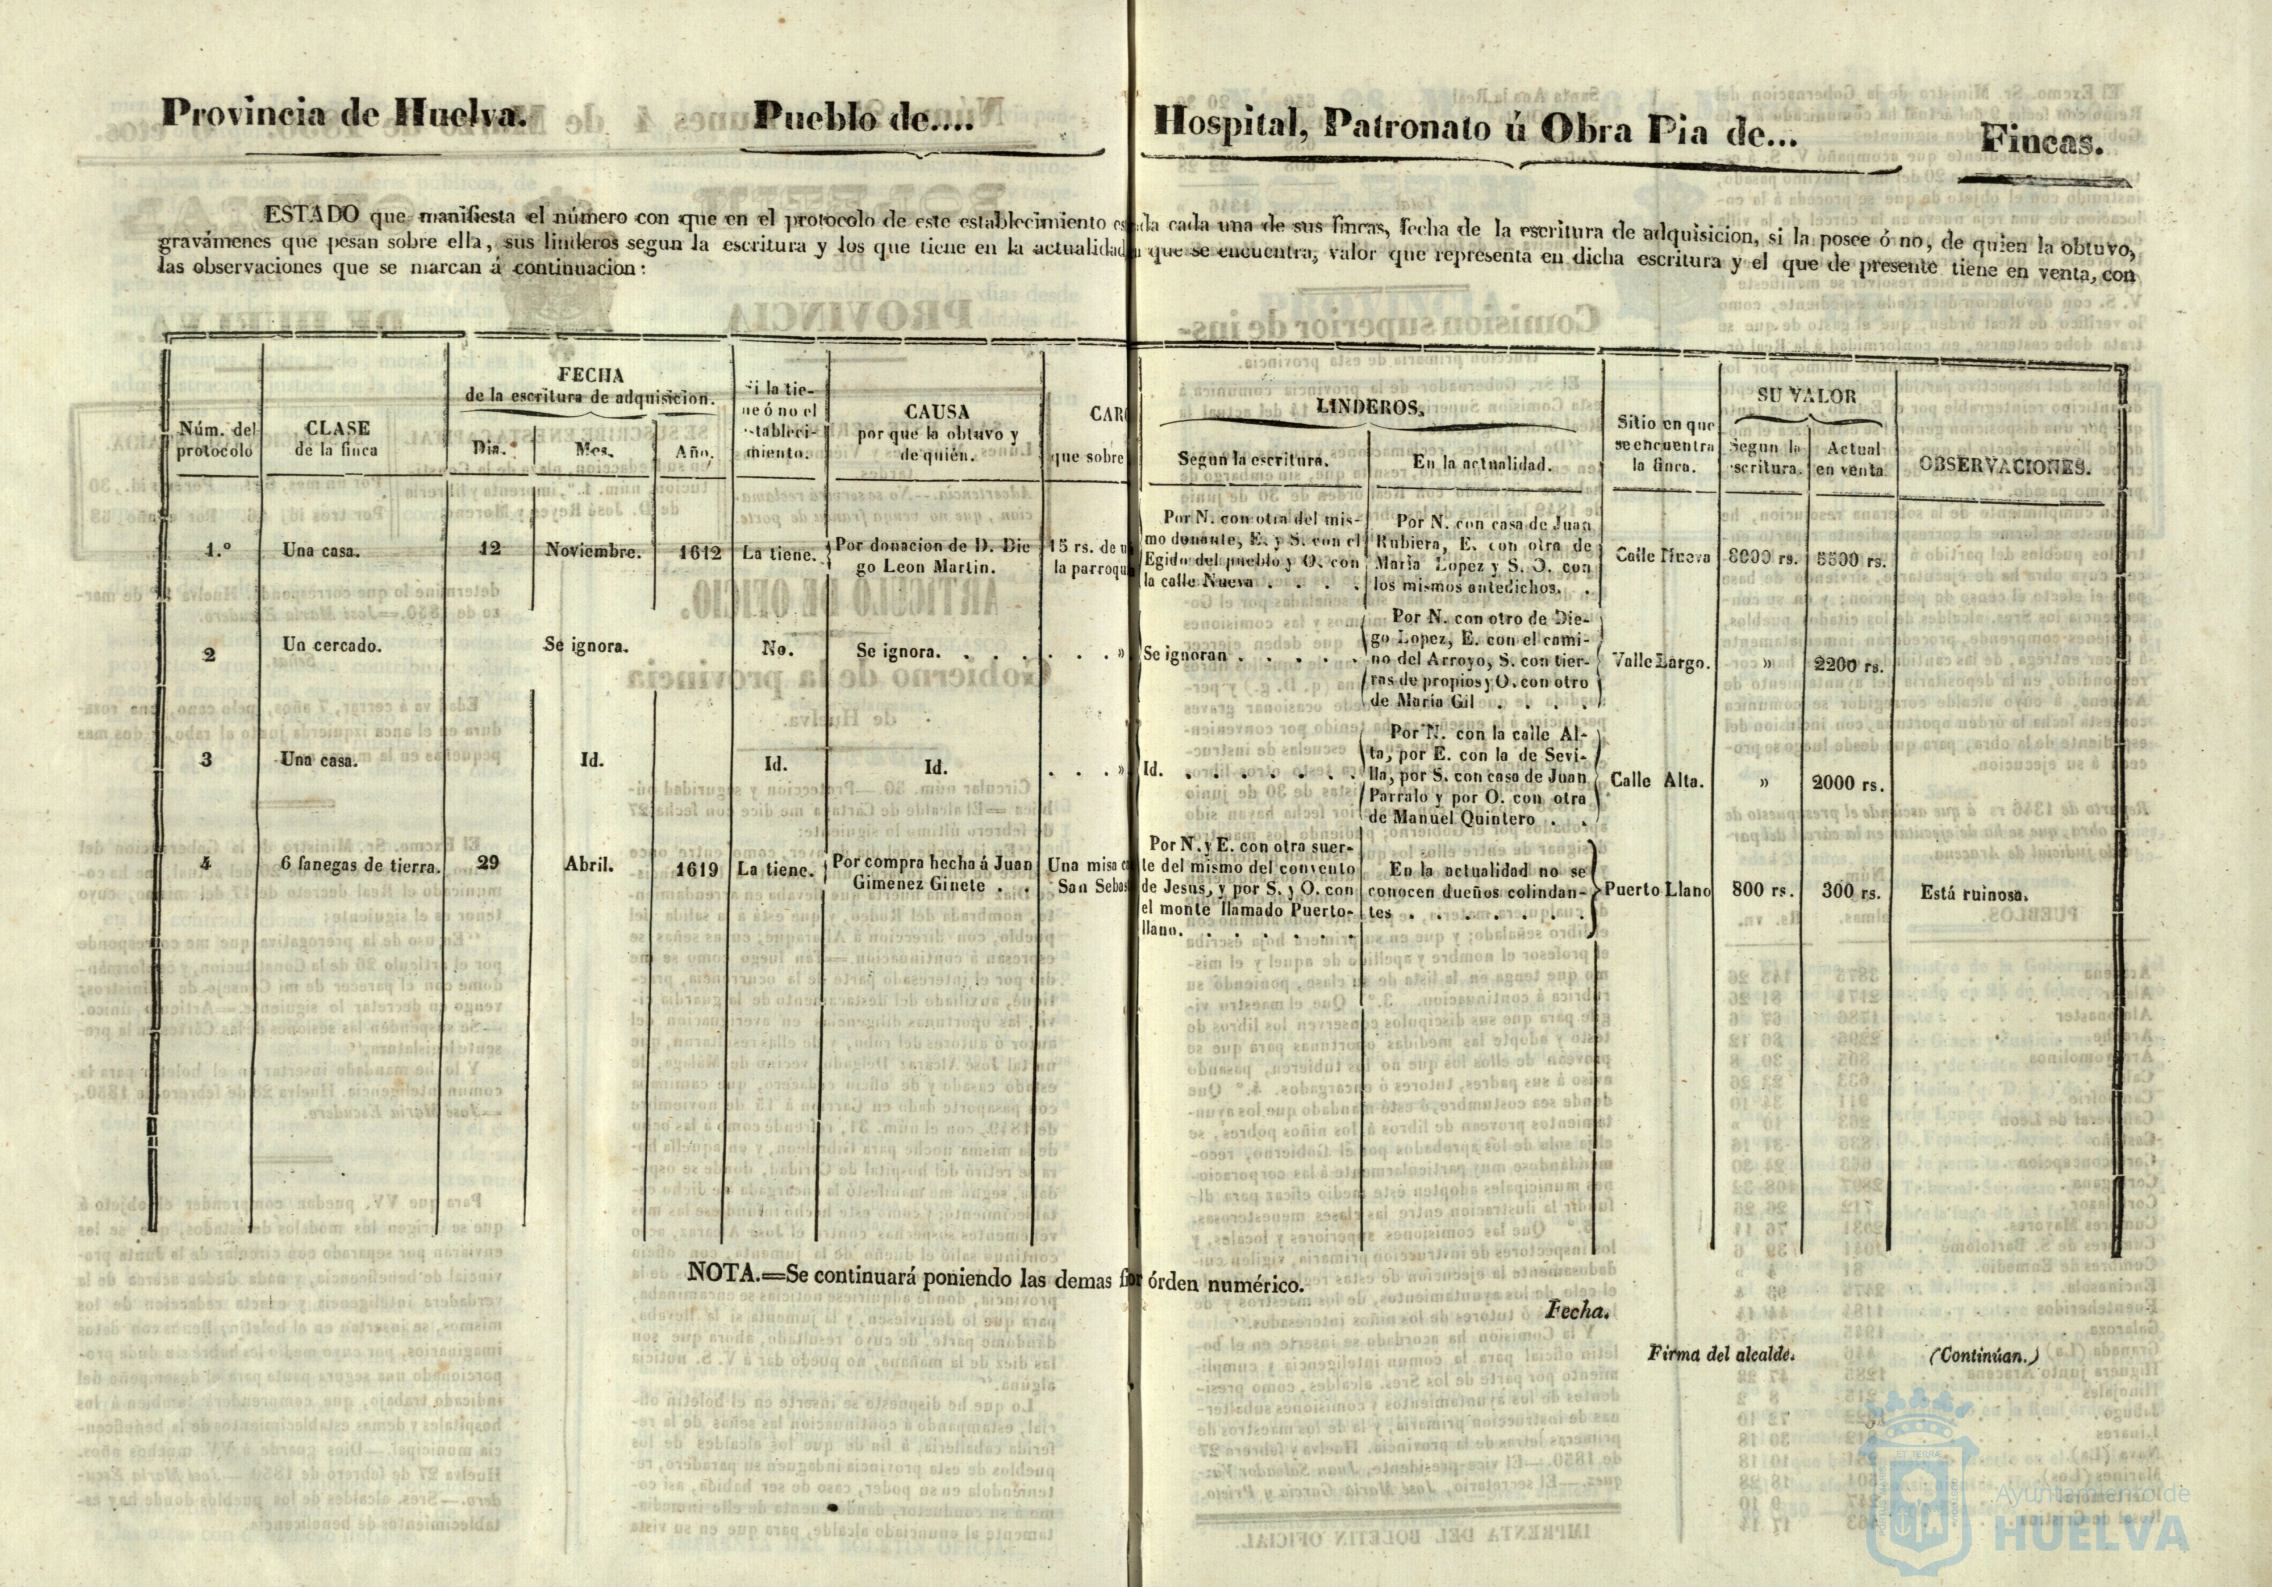 Provincia de Huelva. Pueblo de.... Hospital, Patronato ú Obra Pia de... Fincas.
ESTADO que manifiesta el número con que en el protocolo de este establecimiento cada una de sus fincas, fecha de la escritura de adquisicion, si la posee ó no, de quien la obtuvo,
gravámenes que pesan sobre ella, sus linderos segun la escritura y los que tiene en la actualidad que se encuentra, valor que representa en dicha escritura y el que de presente tiene en venta, con
las observaciones que se marcan á continuacion:
Núm. del
protocolo
CLASE
de la finca
FECHA
de la escritura de adquisicion.
Dia. Mes. Año.
Si la tie-
ne ó no el
estableci-
miento.
CAUSA
por que la obtuvo y
de quién.
que sobre
LINDEROS.
Segun la escritura. En la actualidad.
Sitio en que
se encuentra
la finca.
SU VALOR
Segun la
escritura.
Actual
en venta
OBSERVACIONES.
1.° Una casa. 12 Noviembre. 1612 La tiene.
Por donacion de D. Die
go Leon Martin.
15 rs. de
la
Por N. con otra del mis-
mo donante, E. y S. con el
Egido del pueblo y O. con
la calle Nueva . . . .
Por N. con casa de Juan
Rubiera, E. con otra de
Maria Lopez y S. O. con
los mismos antedichos. .
Calle Nueva 8000 rs. 5500 rs.
2 Un cercado. Se ignora. No. Se ignora. . . . . . . »
Se ignoran . . . . .
Por N. con otro de Die-
go Lopez, E. con el cami-
no del Arroyo, S. con tier-
ras de propios y O. con otro
de María Gil . . . .
Valle Largo. » 2200 rs.
3 Una casa. Id. Id. Id. . . . »
Id. . . . . . . .
Por N. con la calle Al-
ta, por E. con la de Sevi-
lla, por S. con casa de Juan
Parralo y por O. con otra
de Manuel Quintero . .
Calle Alta. » 2000 rs.
4 6 fanegas de tierra. 29 Abril. 1619 La tiene.
Por compra hecha á Juan
Gimenez Ginete . .
Una misa
San
Por N. y E. con otra suer-
te del mismo del convento
de Jesus, y por S. y O. con
el monte llamado Puerto-
llano. . . . . . .
En la actualidad no se
conocen dueños colindan-
tes . . . . . . .
Puerto Llano 800 rs. 300 rs. Está ruinosa.
NOTA.=Se continuará poniendo las demas órden numérico.
Fecha.
Firma del alcalde. (Continúan.)
Ayuntamiento de
HUELVA